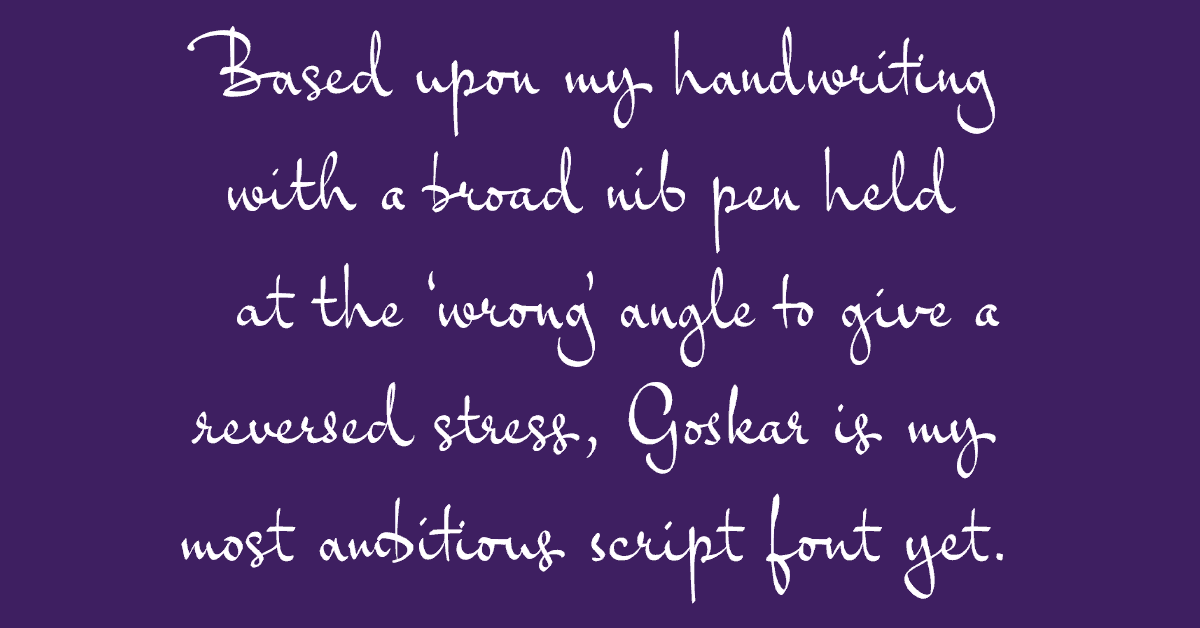 Based upon my handwriting
with a broad nib pen held
at the ‘wrong’ angle to give a
reversed stress, Goskar is my
most ambitious script font yet.